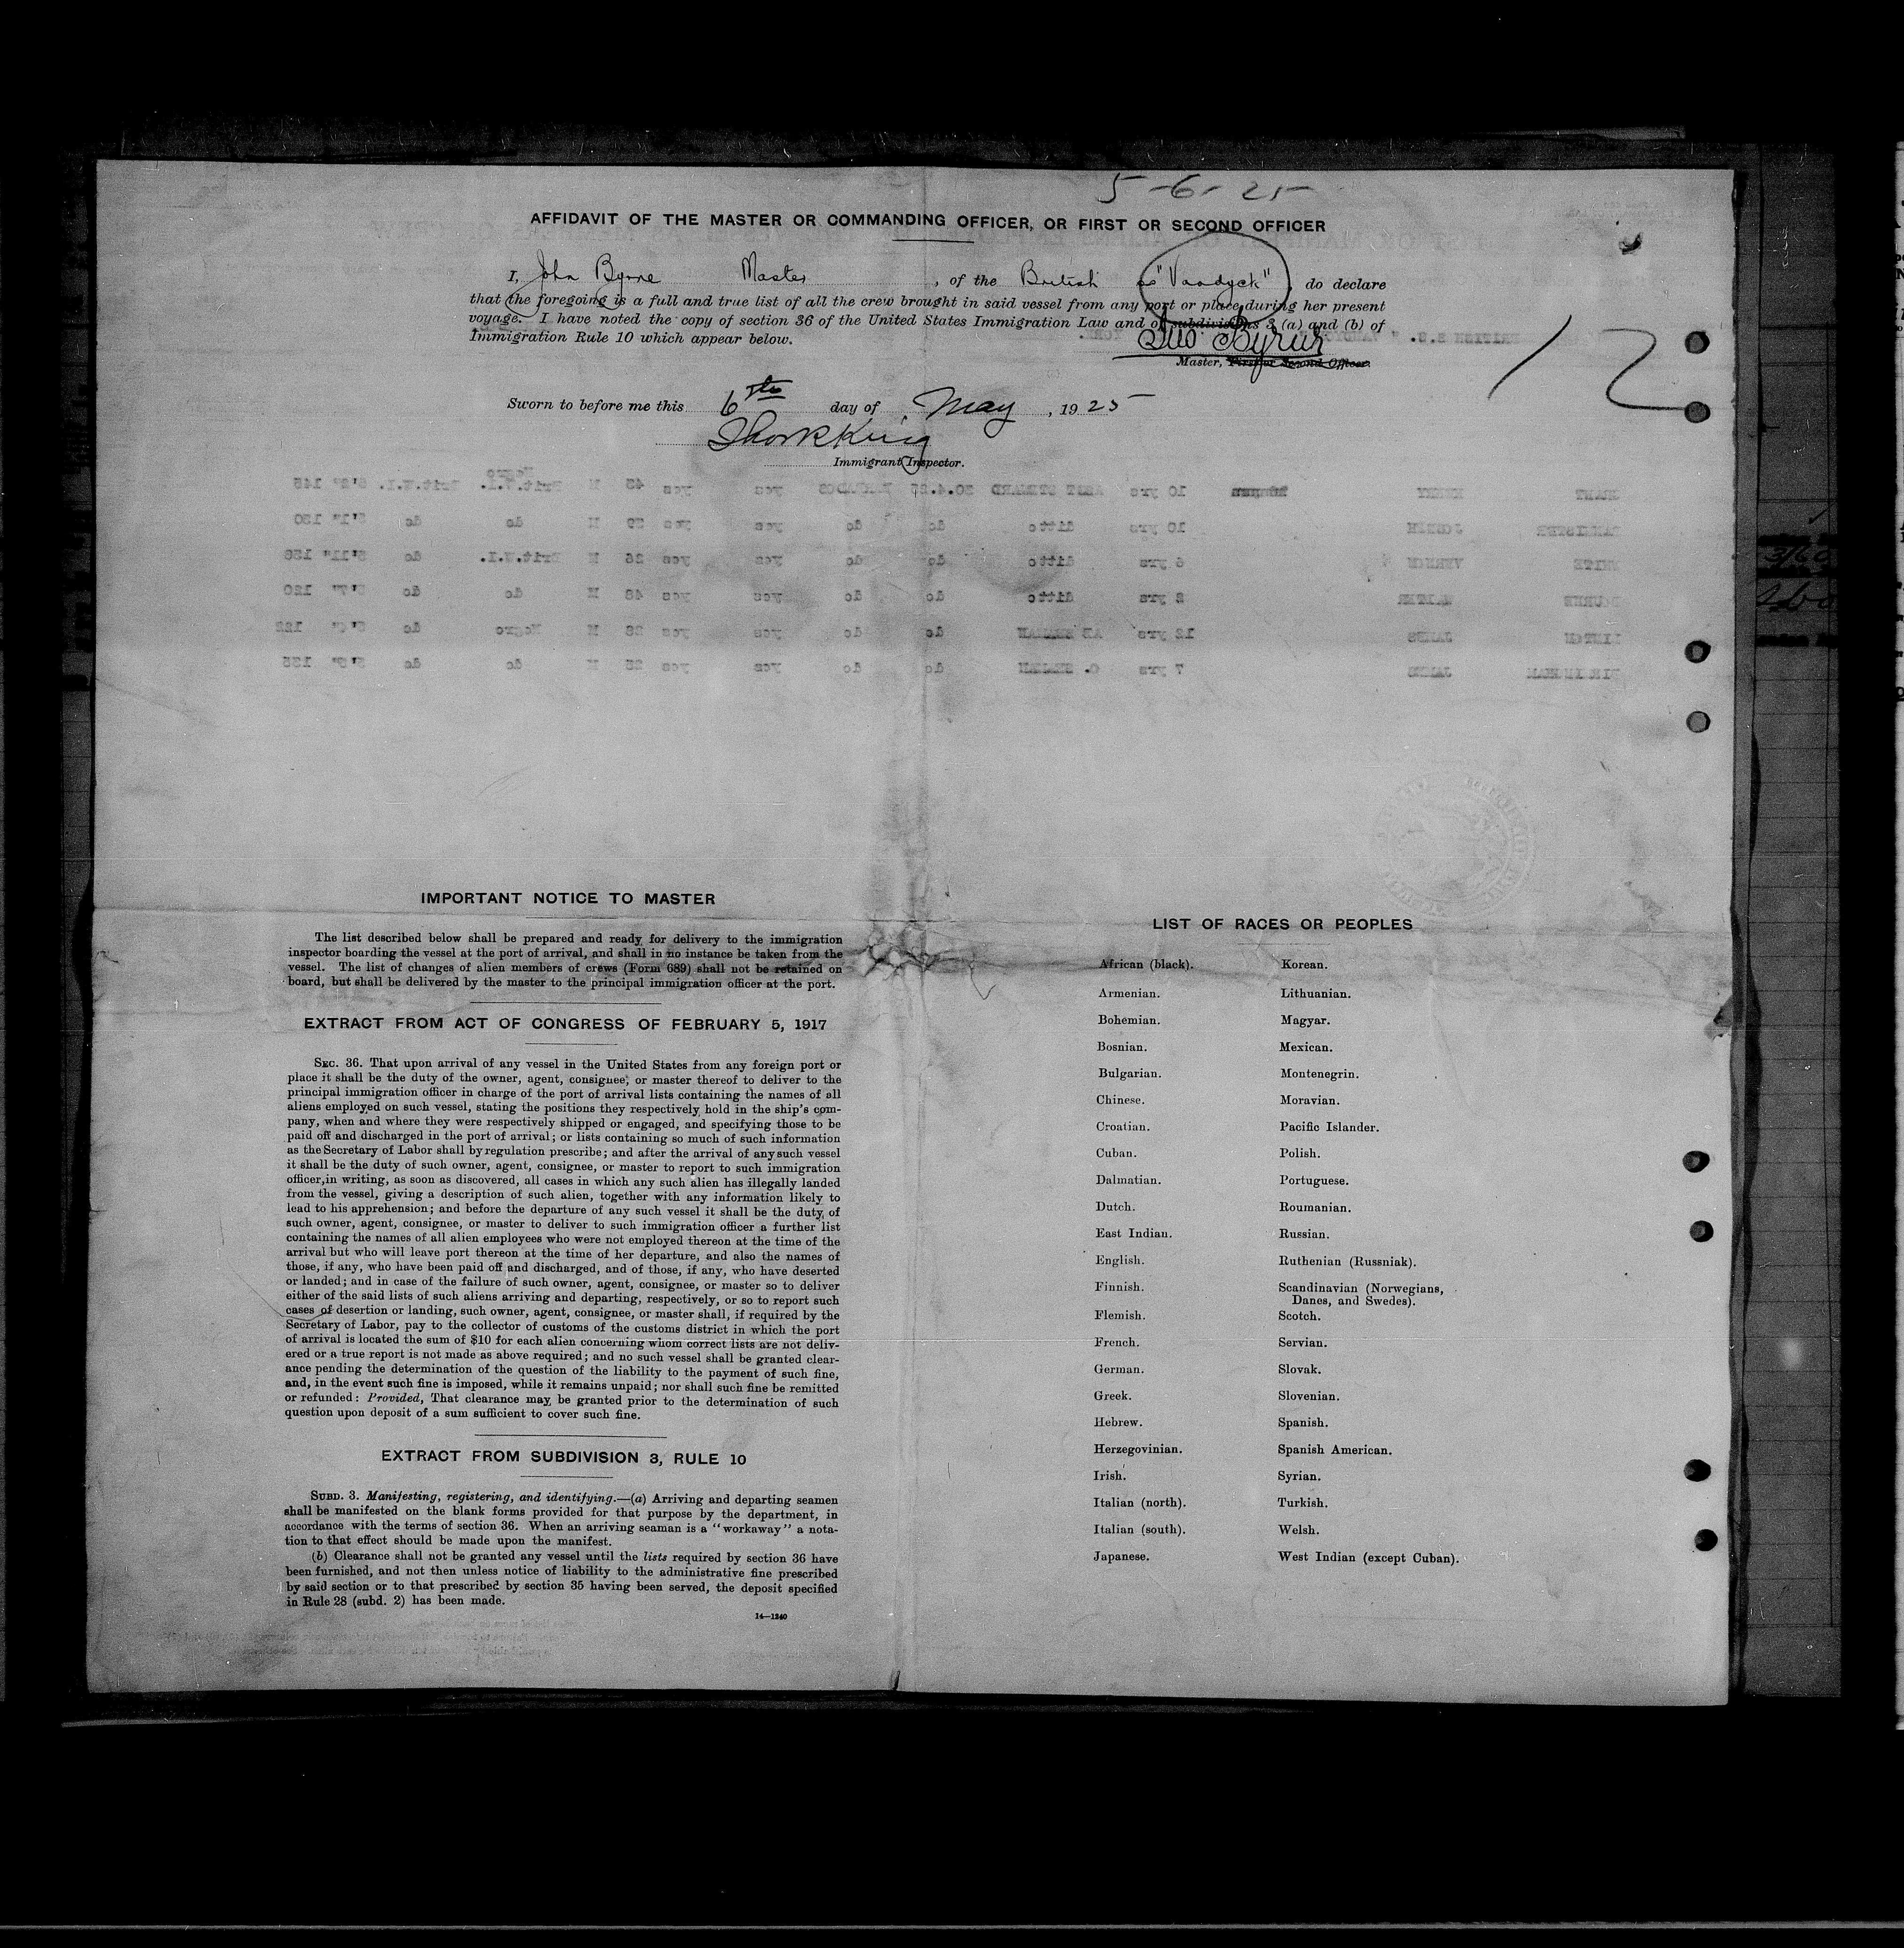 5-6-25
AFFIDAVIT OF THE MASTER OR COMMANDING OFFICER, OR FIRST OR SECOND OFFICER
I, John Byrne Master, of the British ss "Vandyck" do declare
that the foregoing is a full and true list of all the crew brought in said vessel from any port or place during her present
voyage. I have noted the copy of section 36 of the United States Immigration Law and of subdivisions 3 (a) and (b) of
Immigration Rule 10 which appear below.
Jno Byrne
Master, First or Second Officer.
12
Sworn to before me this 6th day of May, 1925
King
Immigrant Inspector.
IMPORTANT NOTICE TO MASTER
The list described below shall be prepared and ready for delivery to the immigration
inspector boarding the vessel at the port of arrival, and shall in no instance be taken from the
vessel. The list of changes of alien members of crews (Form 689) shall not be retained on
board, but shall be delivered by the master to the principal immigration officer at the port.
EXTRACT FROM ACT OF CONGRESS OF FEBRUARY 5, 1917
SEC. 36. That upon arrival of any vessel in the United States from any foreign port or
place it shall be the duty of the owner, agent, consignee, or master thereof to deliver to the
principal immigration officer in charge of the port of arrival lists containing the names of all
aliens employed on such vessel, stating the positions they respectively hold in the ship's com-
pany, when and where they were respectively shipped or engaged, and specifying those to be
paid off and discharged in the port of arrival; or lists containing so much of such information
as the Secretary of Labor shall by regulation prescribe; and after the arrival of any such vessel
it shall be the duty of such owner, agent, consignee, or master to report to such immigration
officer, in writing, as soon as discovered, all cases in which any such alien has illegally landed
from the vessel, giving a description of such alien, together with any information likely to
lead to his apprehension; and before the departure of any such vessel it shall be the duty of
such owner, agent, consignee, or master to deliver to such immigration officer a further list
containing the names of all alien employees who were not employed thereon at the time of the
arrival but who will leave port thereon at the time of her departure, and also the names of
those, if any, who have been paid off and discharged, and of those, if any, who have deserted
or landed; and in case of the failure of such owner, agent, consignee, or master so to deliver
either of the said lists of such aliens arriving and departing, respectively, or so to report such
cases of desertion or landing, such owner, agent, consignee, or master shall, if required by the
Secretary of Labor, pay to the collector of customs of the customs district in which the port
of arrival is located the sum of $10 for each alien concerning whom correct lists are not deliv-
ered or a true report is not made as above required; and no such vessel shall be granted clear-
ance pending the determination of the question of the liability to the payment of such fine,
and, in the event such fine is imposed, while it remains unpaid; nor shall such fine be remitted
or refunded: Provided, That clearance may be granted prior to the determination of such
question upon deposit of a sum sufficient to cover such fine.
EXTRACT FROM SUBDIVISION 3, RULE 10
SUBD. 3. Manifesting, registering, and identifying.—(a) Arriving and departing seamen
shall be manifested on the blank forms provided for that purpose by the department, in
accordance with the terms of section 36. When an arriving seaman is a "workaway" a nota-
tion to that effect should be made upon the manifest.
(b) Clearance shall not be granted any vessel until the lists required by section 36 have
been furnished, and not then unless notice of liability to the administrative fine prescribed
by said section or to that prescribed by section 35 having been served, the deposit specified
in Rule 28 (subd. 2) has been made.
14—1240
LIST OF RACES OR PEOPLES
African (black). Korean.
Armenian. Lithuanian.
Bohemian. Magyar.
Bosnian. Mexican.
Bulgarian. Montenegrin.
Chinese. Moravian.
Croatian. Pacific Islander.
Cuban. Polish.
Dalmatian. Portuguese.
Dutch. Roumanian.
East Indian. Russian.
English. Ruthenian (Russniak).
Finnish. Scandinavian (Norwegians,
Danes, and Swedes).
Flemish. Scotch.
French. Servian.
German. Slovak.
Greek. Slovenian.
Hebrew. Spanish.
Herzegovinian. Spanish American.
Irish. Syrian.
Italian (north). Turkish.
Italian (south). Welsh.
Japanese. West Indian (except Cuban).